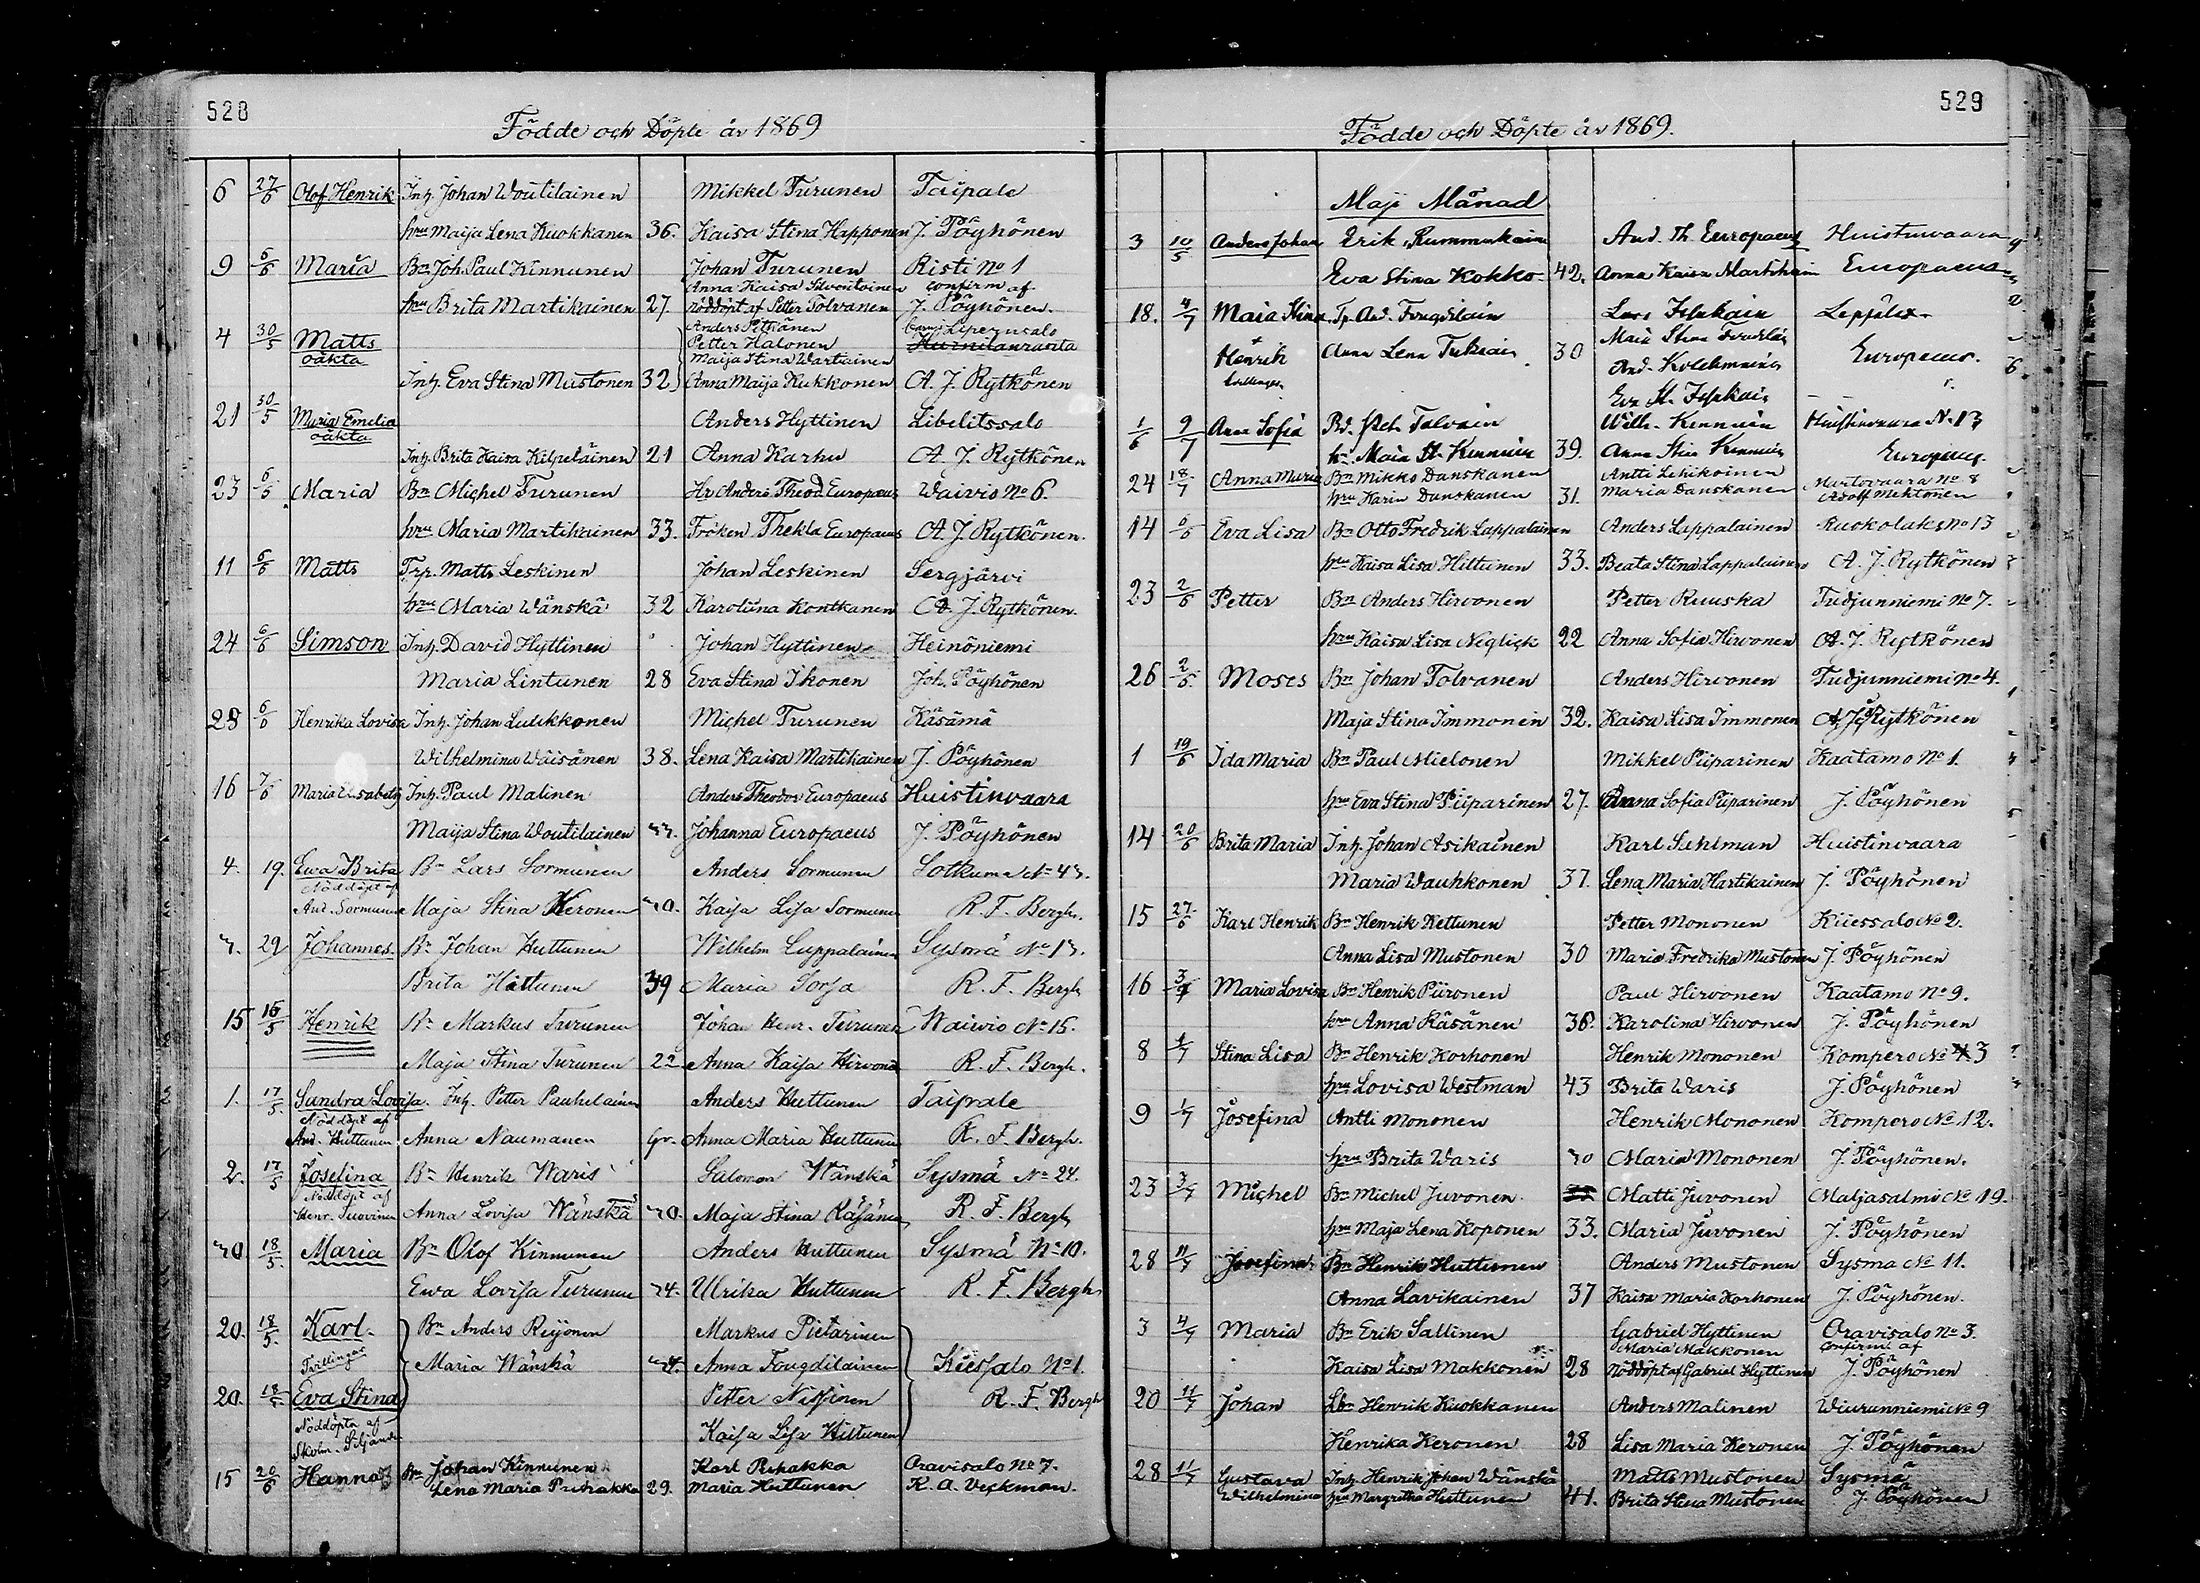 528
Födde och Döpte år 1869
6 27/6 Olof Henrik Inh. Johan Woutilainen Mikkel Turunen Taipale
hru Maija Lena Kuokkanen 36. Kaisa Stina Happonen J. Pöyhönen
9 6/6 Maria Bn Joh. Paul Kinnunen Johan Turunen Risti No 1
Anna Kaisa Silventoinen confirm af
hru Brita Martikainen 27. nöddöpt af Petter Tolvanen J. Pöyhönen.
4 30/5 Matts Anders Pitkänen Liperinsalo
oäkta Petter Halonen
Maija Stina Wartiainen
Inh. Eva Stina Mustonen 32 Anna Maija Kukkonen A. J. Rytkönen
21 30/5 Maria Emelia Anders Hyttinen Libelitssalo
oäkta
Inh. Brita Kaisa Kilpeläinen 21 Anna Karhu A. J. Rytkönen
23 6/6 Maria Bn Michel Turunen Hr Anders Theod Europæus Waivio No 6.
hru Maria Martikainen 33. Fröken Thekla Europaeus A. J. Rytkönen.
11 6/6 Matts Trp. Matts Leskinen Johan Leskinen Sergjärvi
hru Maria Wänskä 32 Karolina Kontkanen A. J. Rytkönen.
24 6/6 Simson Inh. David Hyttinen Johan Hyttinen Heinöniemi
Maria Lintunen 28 Eva Stina Ikonen Joh. Pöyhönen
28 6/6 Henrika Lovisa Inh. Johan Luukkonen Michel Turunen Käsämä
Wilhelmina Wäisänen 38. Lena Kaisa Martikainen J. Pöyhönen
16 7/6 Maria Elisabeth Inh. Paul Malinen Anders Theodor Europaeus Huistinvaara
Maija Stina Woutilainen Johanna Europaeus J. Pöyhönen
4. 19. Ewa Brita Bn Lars Sormunen Anders Sormunen Sotkuma
Nöddöpt af
And. Sormunen Maja Stina Keronen Kaisa Lisa Sormunen R. F. Bergh.
29 Johannes. Bn Johan Huttunen Wilhelm Lappalainen Sysmä
Brita Hättunen 39 Maria Sorsa R. F. Bergh
15 16/5 Henrik Bn Markus Turunen Johan Henr. Turunen Waiwio No 15.
Maja Stina Turunen 22 Anna Kaisa Hirvonen R. F. Bergh.
1. 17/5. Sandra Lovisa. Inh. Petter Pauhelainen Anders Huttunen Taipale
Nöddöpt af
And. Huttunen. Anna Naumanen Anna Maria Huttunen R. F. Bergh.
2. 17/5 Josefina Bn Henrik Waris Salomon Wänskä Sysmä No 24.
Nöddöpt af
Henr. Anna Lovisa Wänskä Maja Stina Räsänen R. F. Bergh
18/5. Maria Bn Olof Kinnunen Anders Huttunen Sysmä No 10.
Ewa Lovisa Turunen Ulrika Huttunen R. F. Bergh
20. 18/5. Karl. Bn Anders Reijonen Markus Pietarinen
Tvillingar Maria Wänskä Anna Fougdilainen Kiessalo No 1.
20. 18/5 Eva Stina Petter Nissinen R. F. Bergh
Nöddöpta af
Kaisa Lisa Hiltunen
15 20/6 Hanna Bn Johan Kinnunen Karl Puhakka Oravisalo No 7.
Lena Maria Puhakka 29. Maria Huttunen K. A. Veckman.
529
Födde och Döpte år 1869.
Maji Månad
3 10/5 Anders Johan Erik Rummukain And. Th. Europaeus Huistinvaara
Eva Stina Kokko 42. Anna Kaisa Martikain Europaeus
18. 4/7 Maia Stina Tp. And. Fougdilain Lars Leppälax
Henrik Anna Lena 30 Maia Stina
And. Kolehmainen Europaeus.
1/6 9/7 Anna Sofia Bd. Pet. Tolvain Willh. Kinnuin Huistinvaara N. 13
hr. Maia St. Kinnuin 39. Anna Stin Kinnuin Europaeus
24 18/7 Anna Maria Bn Mikko Danskanen Antti Lehikoinen Martovaara No 8
hru Karin Danskanen 31. Maria Danskanen Adolf Mehtonen
14 6/6 Eva Lisa Bn Otto Fredrik Lappalainen Anders Lappalainen Ruokolaks No 13
hru Kaisa Lisa Hiltunen 33. Beata Stina Lappalainen A. J. Rytkönen
23 2/6 Petter Bn Anders Hirvonen Petter Ruuska Tudjunniemi No 7.
hru Kaisa Lisa Neglick 22 Anna Sofia Hirvonen A. J. Rytkönen
26 2/6 Moses Bn Johan Tolvanen Anders Hirvonen Tudjunniemi No 4.
Maja Stina Immonen 32. Kaisa Lisa Immonen A. J. Rytkönen
1 19/6 Ida Maria Bn Paul Mielonen Mikkel Piiparinen Kaatamo No 1.
hru Eva Stina Piiparinen 27. Anna Sofia Piiparinen J. Pöyhönen
14 20/6 Brita Maria Inh. Johan Asikainen Karl Suhlman Huistinvaara
Maria Wauhkonen 37. Lena Maria Hartikainen J. Pöyhönen
15 27/6 Karl Henrik Bn Henrik Kettunen Petter Mononen Kiiessalo No 2.
Anna Lisa Mustonen 30 Maria Fredrika Mustonen J. Pöyhönen
16 3/7 Maria Lovisa Bn Henrik Piironen Paul Hirvonen Kaatamo No 9.
hru Anna Räsänen 36. Karolina Hirvonen J. Pöyhönen
8 1/7 Stina Lisa Bn Henrik Korhonen Henrik Mononen Kompero No 3
hru Lovisa Westman 43 Brita Waris J. Pöyhönen
9 1/7 Josefina Antti Mononen Henrik Mononen Kompero No 12.
hru Brita Waris Maria Mononen J. Pöyhönen.
23 3/7 Michel Bn Michel Juvonen Matti Juvonen Maljasalmi No 19.
hru Maja Lena Koponen 33. Maria Juvonen J. Pöyhönen
28 11/7 Josefina Bn Henrik Huttunen Anders Mustonen Sysmä No 11.
Anna Lavikainen 37 Kaisa Maria Korhonen J. Pöyhönen.
3 4/7 Maria Bn Erik Sallinen Gabriel Hyttinen Oravisalo No 3.
Maria Makkonen confirm af
Kaisa Lisa Makkonen 28 Nöddöpt af Gabriel Hyttinen J. Pöyhönen
20 11/7 Johan Lbn Henrik Kuokkanen Anders Malinen Wiurunniemi No 9
Henrika Keronen 28 Lisa Maria Keronen J. Pöyhönen
28 11/7 Gustava Inh. Henrik Johan Wänskä Matts Mustonen Sysmä
Wilhelmina hru Margretha Huttunen 41. Brita Stina Mustonen J. Pöyhönen